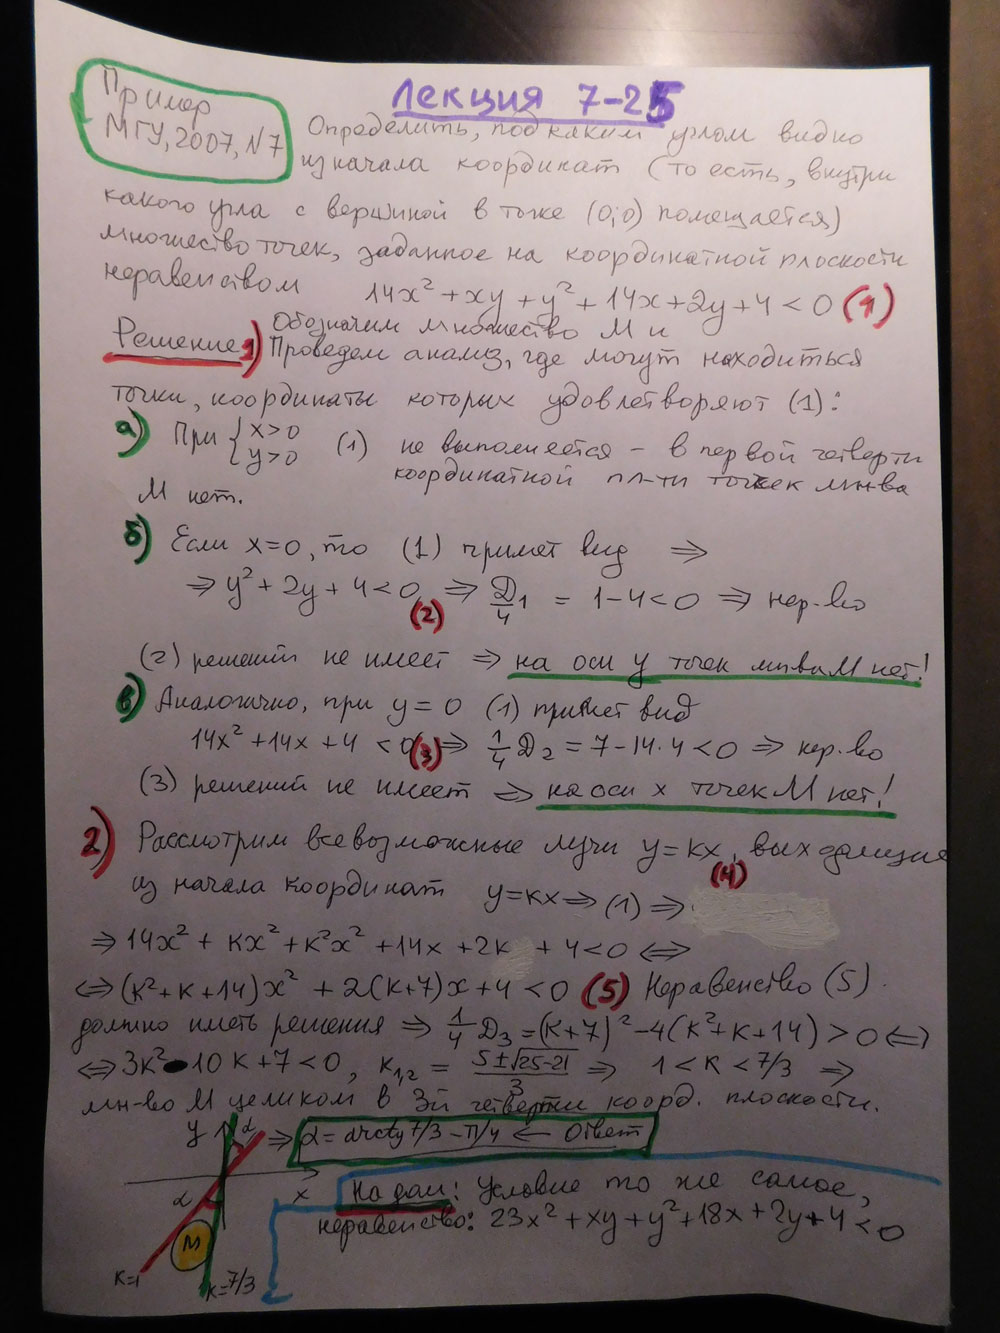 Лекция 7-25
Пример
МГУ, 2007, N7
Определить, под каким углом видно
из начала координат (то есть, внутри
какого угла с вершиной в точке (0;0) помещается)
множество точек, заданное на координатной плоскости
неравенством 14x² + xy + y² + 14x + 2y + 4 < 0 (1)
Решение 1) Обозначим множество M и
Проведем анализ, где могут находиться
точки, координаты которых удовлетворяют (1):
а) При { x>0 y>0 (1) не выполняется – в первой четверти
координатной пл-ти точек мн-ва
M нет.
б) Если x=0, то (1) примет вид ⇒
⇒ y² + 2y + 4 < 0 (2) ⇒ D₁/4 = 1-4<0 ⇒ нер-во
(2) решений не имеет ⇒ на оси y точек мн-ва M нет!
в) Аналогично, при y=0 (1) примет вид
14x² + 14x + 4 < 0 (3) ⇒ 1/4 D₂ = 7-14·4<0 ⇒ нер-во
(3) решений не имеет ⇒ на оси x точек M нет!
2) Рассмотрим всевозможные лучи y=kx, (4) выходящие
из начала координат y=kx ⇒ (1) ⇒
⇒ 14x² + kx² + k²x² + 14x + 2k + 4<0 ⇔
⇔ (k²+k+14)x² + 2(k+7)x+4 < 0 (5) Неравенство (5)
должно иметь решения ⇒ 1/4 D₃=(k+7)²-4(k²+k+14)>0 ⇔
⇔ 3k²-10k+7<0, k₁,₂ = 5±√25-21/3 ⇒ 1<k<7/3 ⇒
мн-во M целиком в 3й четверти коорд. плоскости.
y α ⇒ α = arctg 7/3 - π/4 ← Ответ
α x
На дом: Условие то же самое,
неравенство: 23x² + xy + y² + 18x + 2y + 4 < 0
M
k=1
k=7/3